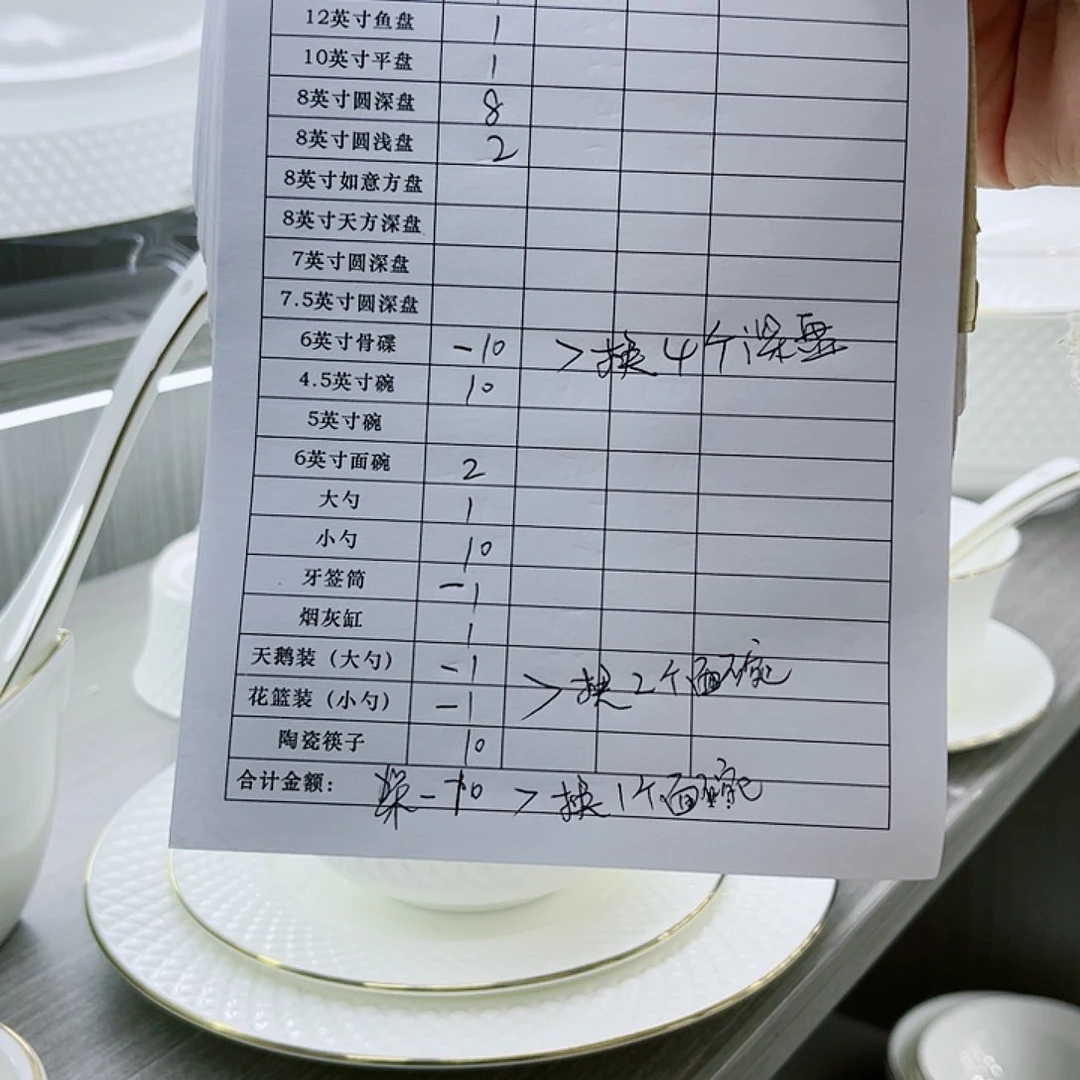 12英寸鱼盘 1
10英寸平盘 1
8英寸圆深盘 8
8英寸圆浅盘 2
8英寸如意方盘
8英寸天方深盘
7英寸圆深盘
7.5英寸圆深盘
6英寸骨碟 -10 >换4个深盘
4.5英寸碗 10
5英寸碗
6英寸面碗 2
大勺 1
小勺 10
牙签筒 -1
烟灰缸 1
天鹅装（大勺） -1 >换2个面碗
花篮装（小勺） -1
陶瓷筷子 10
合计金额： 架-10 >换1个面碗